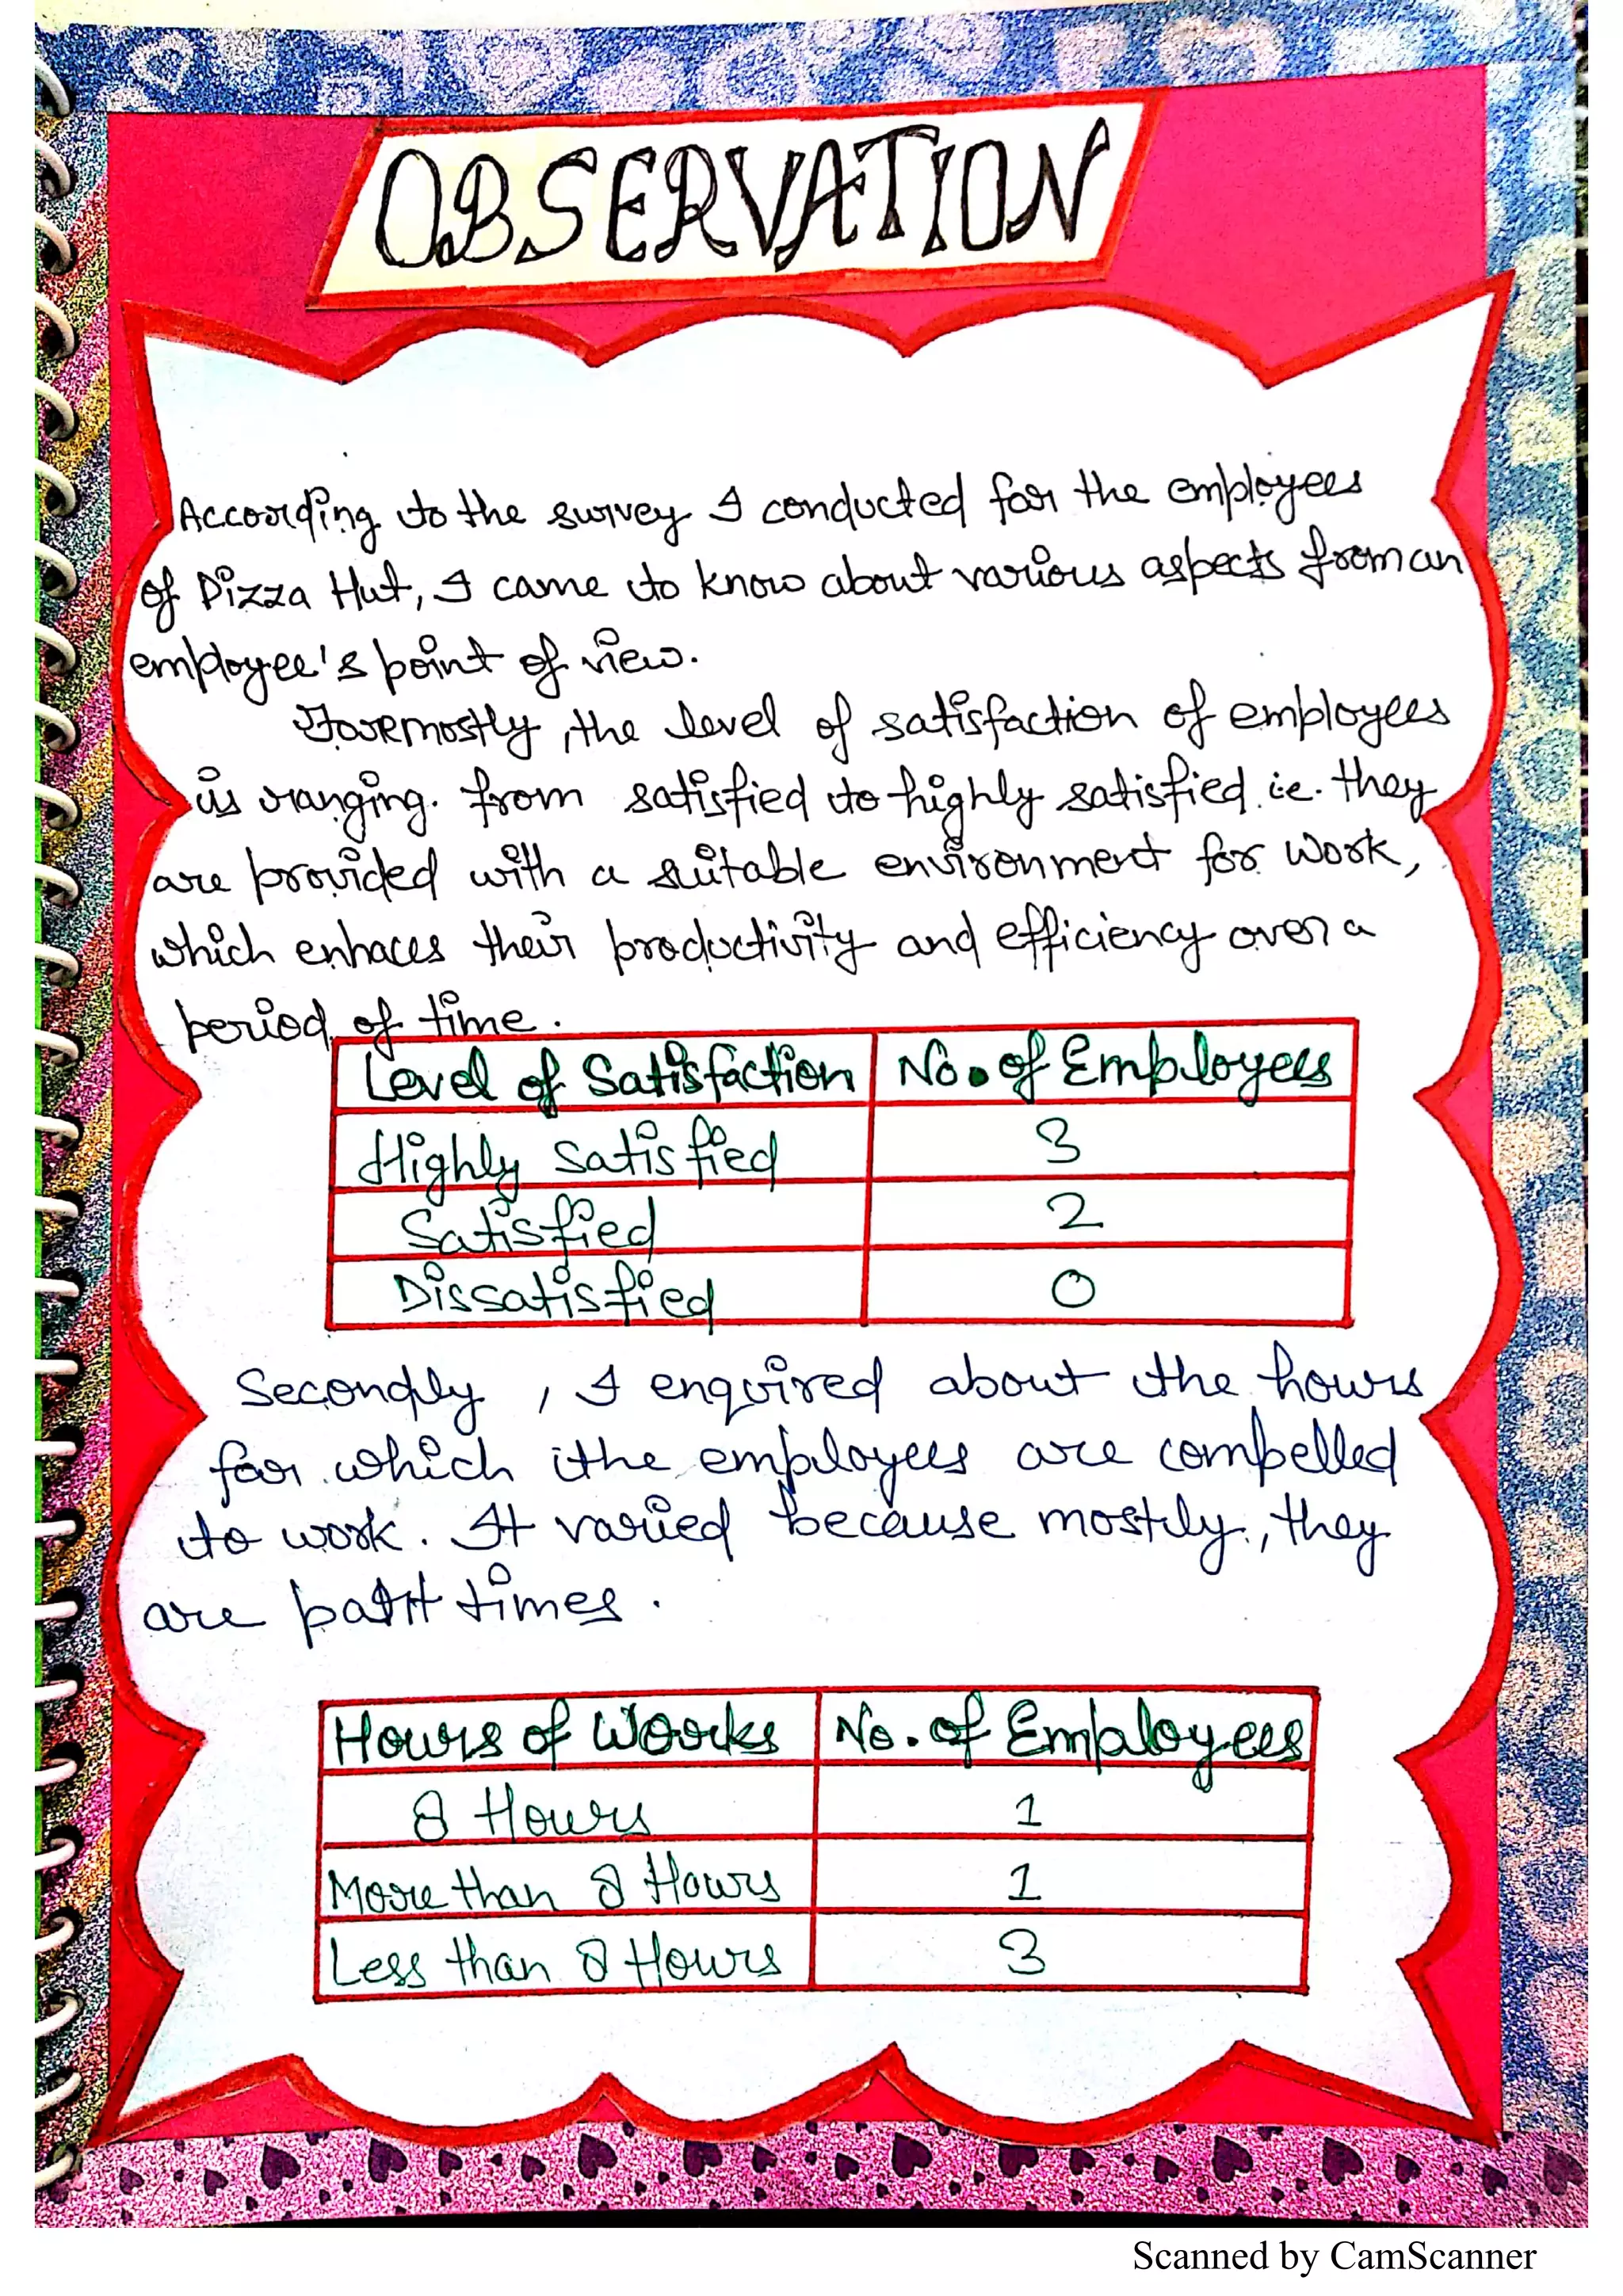 OBSERVATION
According to the survey I conducted for the employees
of Pizza Hut, I came to know about various aspects from an
employee's point of view.
Foremostly, the level of satisfaction of employees
is ranging. from satisfied to highly satisfied. i.e. they
are provided with a suitable environment for work,
which enhaces their productivity and efficiency over a
period of time.
Level of Satisfaction No. of Employees
Highly Satisfied 3
Satisfied 2
Dissatisfied 0
Secondly, I enquired about the hours
for which the employees are compelled
to work. It varied because mostly, they
are part times.
Hours of Works No. of Employees
8 Hours 1
More than 8 Hours 1
Less than 8 Hours 3
Scanned by CamScanner